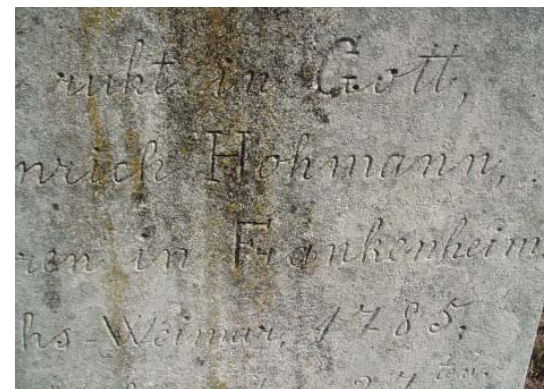 ruht in Gott,
nrich Hohmann,
ren in Frankenheim
hs-Weimar, 1785,
27ten